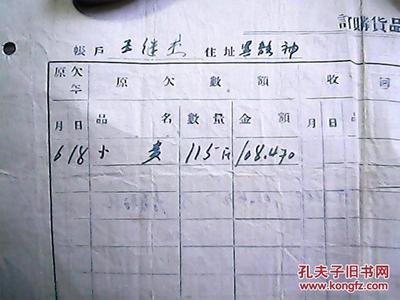 訂購貨品
帳戶 王继 住址
原欠 原欠數額 收回
月 日 品名 數量 金額 月 日
6 18 小麦 115斤 108.470
孔夫子旧书网
www.kongfz.com